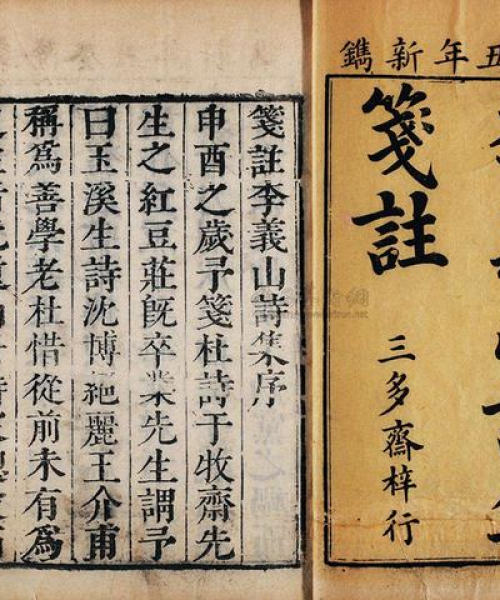 五年新鐫
箋註
三多齋梓行
箋註李義山詩集序
申酉之歲予箋杜詩于牧齋先
生之紅豆莊旣卒業先生謂予
曰玉溪生詩沈博絕麗王介甫
稱爲善學老杜惜從前未有爲